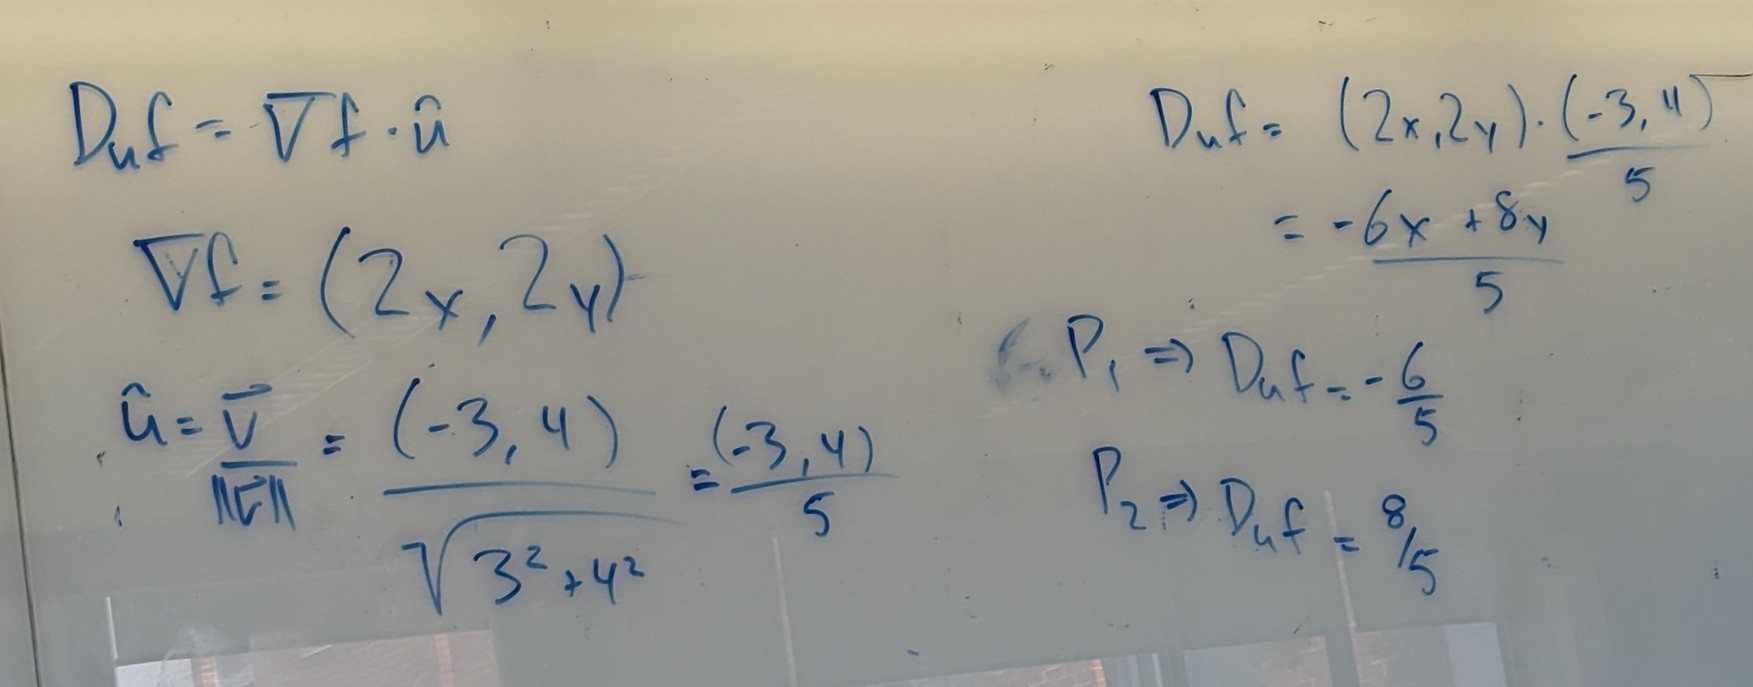 Duf = ∇f · û
∇f = (2x, 2y)
û = v⃗ / ‖v⃗‖ = (-3, 4) / √(3² + 4²) = (-3, 4) / 5
Duf = (2x, 2y) · (-3, 4) / 5
= -6x + 8y / 5
P₁ ⇒ Duf = - 6/5
P₂ ⇒ Duf = 8/5